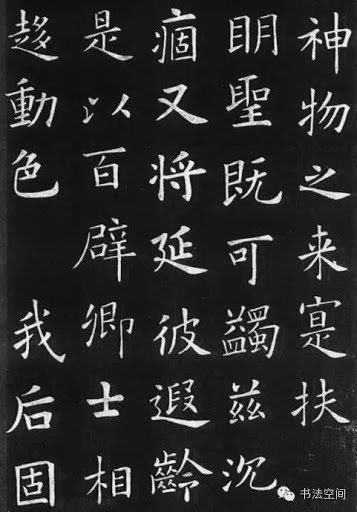 神物之来寔扶
眀聖既可蠲兹沉
痼又将延彼遐齡
是以百辟卿士相
趍動色 我后固
书法空间